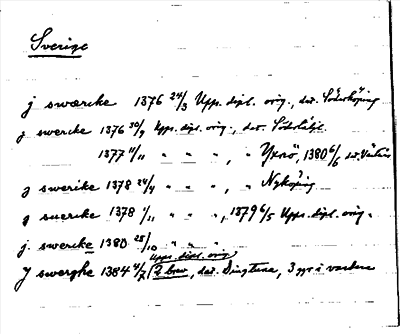 Sverige
j swærike 1376 24/3 Upps. dipl. orig., dat. Söderköping
j swerike 1376 30/9 Upps. dipl. orig., dat.
1377 11/11 " " " , " , 1380 6/6 dat.
j swerike 1378 24/4 " " " , " Nyköping
j suerike 1378 1/11 " " " , 1379 6/5 Upps. dipl. orig.
j. swerike 1380 28/10 " " "
Upps. dipl. orig.
J swerghe 1384 4/7 (2 brev, dat. Dingtuna, 3 ggr i vardera